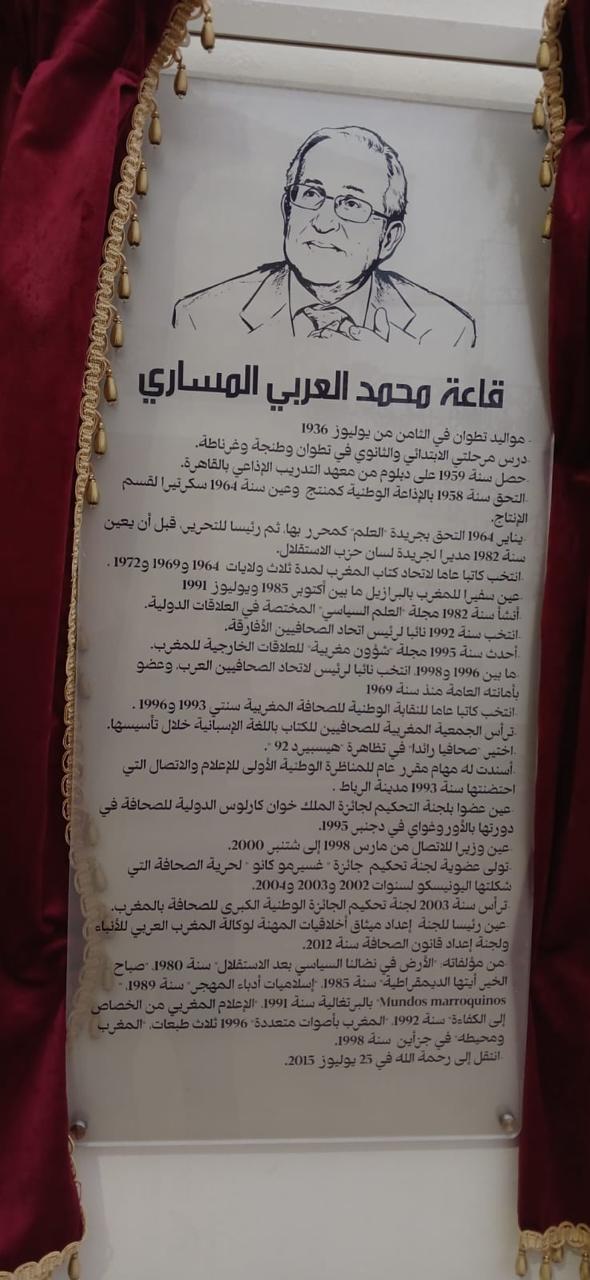 قاعة محمد العربي المساري
- مواليد تطوان في الثامن من يوليوز 1936
-درس مرحلتي الابتدائي والثانوي في تطوان وطنجة وغرناطة.
-حصل سنة 1959 على دبلوم من معهد التدريب الإذاعي بالقاهرة.
-التحق سنة 1958 بالإذاعة الوطنية كمنتج وعين سنة 1964 سكرتيرا لقسم
الإنتاج.
-يناير 1964 التحق بجريدة "العلم" كمحرر بها، ثم رئيسا للتحرير، قبل أن يعين
سنة 1982 مديرا لجريدة لسان حزب الاستقلال.
-انتخب كاتبا عاما لاتحاد كتاب المغرب لمدة ثلاث ولايات 1964 و1969 و1972 .
-عين سفيرا للمغرب بالبرازيل ما بين أكتوبر 1985 ويوليوز 1991
-أنشأ سنة 1982 مجلة "العلم السياسي" المختصة في العلاقات الدولية.
-انتخب سنة 1992 نائبا لرئيس اتحاد الصحافيين الأفارقة.
-أحدث سنة 1995 مجلة "شؤون مغربية" للعلاقات الخارجية للمغرب.
-ما بين 1996 و1998، انتخب نائبا لرئيس لاتحاد الصحافيين العرب، وعضو
بأمانته العامة منذ سنة 1969
-انتخب كاتبا عاما للنقابة الوطنية للصحافة المغربية سنتي 1993 و1996 .
-ترأس الجمعية المغربية للصحافيين للكتاب باللغة الإسبانية خلال تأسيسها.
-اختير "صحافيا رائدا" في تظاهرة "هيسبيرد 92 ".
-أسندت له مهام مقرر عام للمناظرة الوطنية الأولى للإعلام والاتصال التي
احتضنتها سنة 1993 مدينة الرباط .
-عين عضوا بلجنة التحكيم لجائزة الملك خوان كارلوس الدولية للصحافة في
دورتها بالأوروغواي في دجنبر 1995.
-عين وزيرا للاتصال من مارس 1998 إلى شتنبر 2000.
-تولى عضوية لجنة تحكيم جائزة " غسيرمو كانو " لحرية الصحافة التي
شكلتها اليونيسكو لسنوات 2002 و2003 و2004.
-ترأس سنة 2003 لجنة تحكيم الجائزة الوطنية الكبرى للصحافة بالمغرب.
-عين رئيسا للجنة إعداد ميثاق أخلاقيات المهنة لوكالة المغرب العربي للأنباء
ولجنة إعداد قانون الصحافة سنة 2012.
-من مؤلفاته: "الأرض في نضالنا السياسي بعد الاستقلال" سنة 1980، "صباح
الخير أيتها الديمقراطية" سنة 1985، "إسلاميات أدباء المهجر" سنة 1989، "
Mundos marroquinos" بالبرتغالية سنة 1991، "الإعلام المغربي من الخصاص
إلى الكفاءة" سنة 1992، "المغرب بأصوات متعددة" 1996 ثلاث طبعات، "المغرب
ومحيطه" في جزأين سنة 1998.
-انتقل إلى رحمة الله في 25 يوليوز 2015.